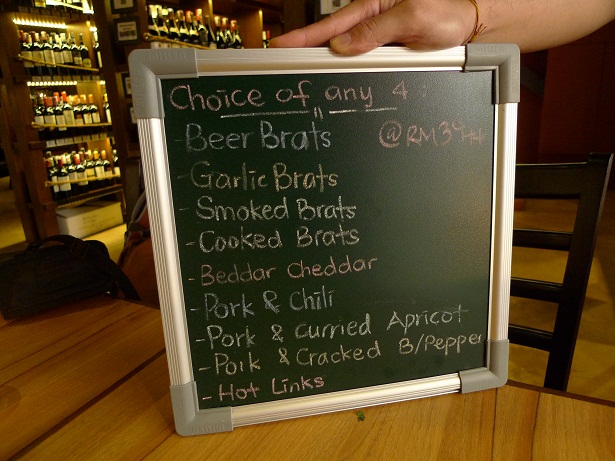 Choice of any 4
"
- Beer Brats @RM39++
- Garlic Brats
- Smoked Brats
- Cooked Brats
- Beddar Cheddar
- Pork & Chili
- Pork & curried Apricot
- Pork & Cracked B/Pepper
- Hot Links